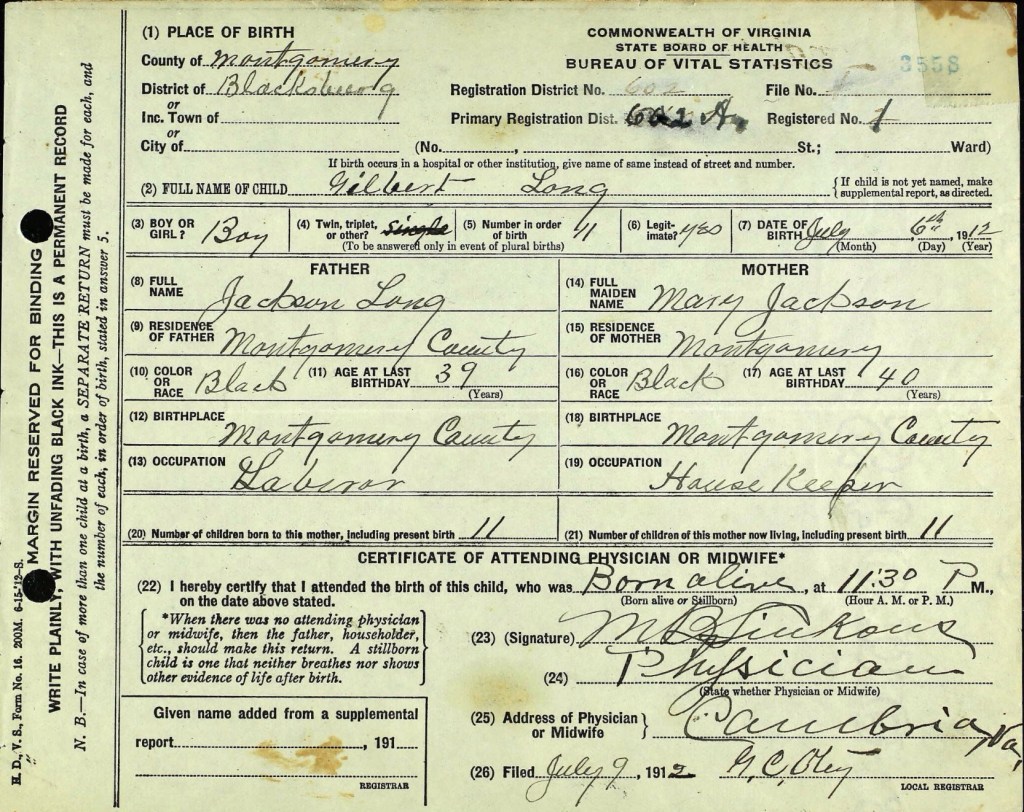 (1) PLACE OF BIRTH
County of Montgomery
District of Blacksburg
or
Inc. Town of
or
City of
COMMONWEALTH OF VIRGINIA
STATE BOARD OF HEALTH
BUREAU OF VITAL STATISTICS
3558
Registration District No. 602 File No.
Primary Registration Dist. 602 A Registered No. 1
(No. , St.; Ward)
If birth occurs in a hospital or other institution, give name of same instead of street and number.
(2) FULL NAME OF CHILD Gilbert Long
{If child is not yet named, make
supplemental report, as directed.
(3) BOY OR GIRL? Boy
(4) Twin, triplet, or other? single
(5) Number in order of birth 11
(To be answered only in event of plural births)
(6) Legitimate? yes
(7) DATE OF BIRTH July 6th, 1912
(Month) (Day) (Year)
FATHER
(8) FULL NAME Jackson Long
(9) RESIDENCE OF FATHER Montgomery County
(10) COLOR OR RACE Black
(11) AGE AT LAST BIRTHDAY 39
(Years)
(12) BIRTHPLACE Montgomery County
(13) OCCUPATION Laboror
MOTHER
(14) FULL MAIDEN NAME Mary Jackson
(15) RESIDENCE OF MOTHER Montgomery
(16) COLOR OR RACE Black
(17) AGE AT LAST BIRTHDAY 40
(Years)
(18) BIRTHPLACE Montgomery County
(19) OCCUPATION House Keeper
(20) Number of children born to this mother, including present birth 11
(21) Number of children of this mother now living, including present birth 11
CERTIFICATE OF ATTENDING PHYSICIAN OR MIDWIFE*
(22) I hereby certify that I attended the birth of this child, who was Born alive, at 11:30 P M.,
(Born alive or Stillborn) (Hour A. M. or P. M.)
on the date above stated.
*When there was no attending physician
or midwife, then the father, householder,
etc., should make this return. A stillborn
child is one that neither breathes nor shows
other evidence of life after birth.
(23) (Signature)
(24) Physician
(State whether Physician or Midwife)
Given name added from a supplemental
report , 191
REGISTRAR
(25) Address of Physician or Midwife } Cambria, Va.
(26) Filed July 9, 1912 G. C. Otey
LOCAL REGISTRAR
H. D., V. S., Form No. 16. 200M. 6-15-'12-S.
MARGIN RESERVED FOR BINDING
WRITE PLAINLY, WITH UNFADING BLACK INK—THIS IS A PERMANENT RECORD
N. B.—In case of more than one child at a birth, a SEPARATE RETURN must be made for each, and
the number of each, in order of birth, stated in answer 5.